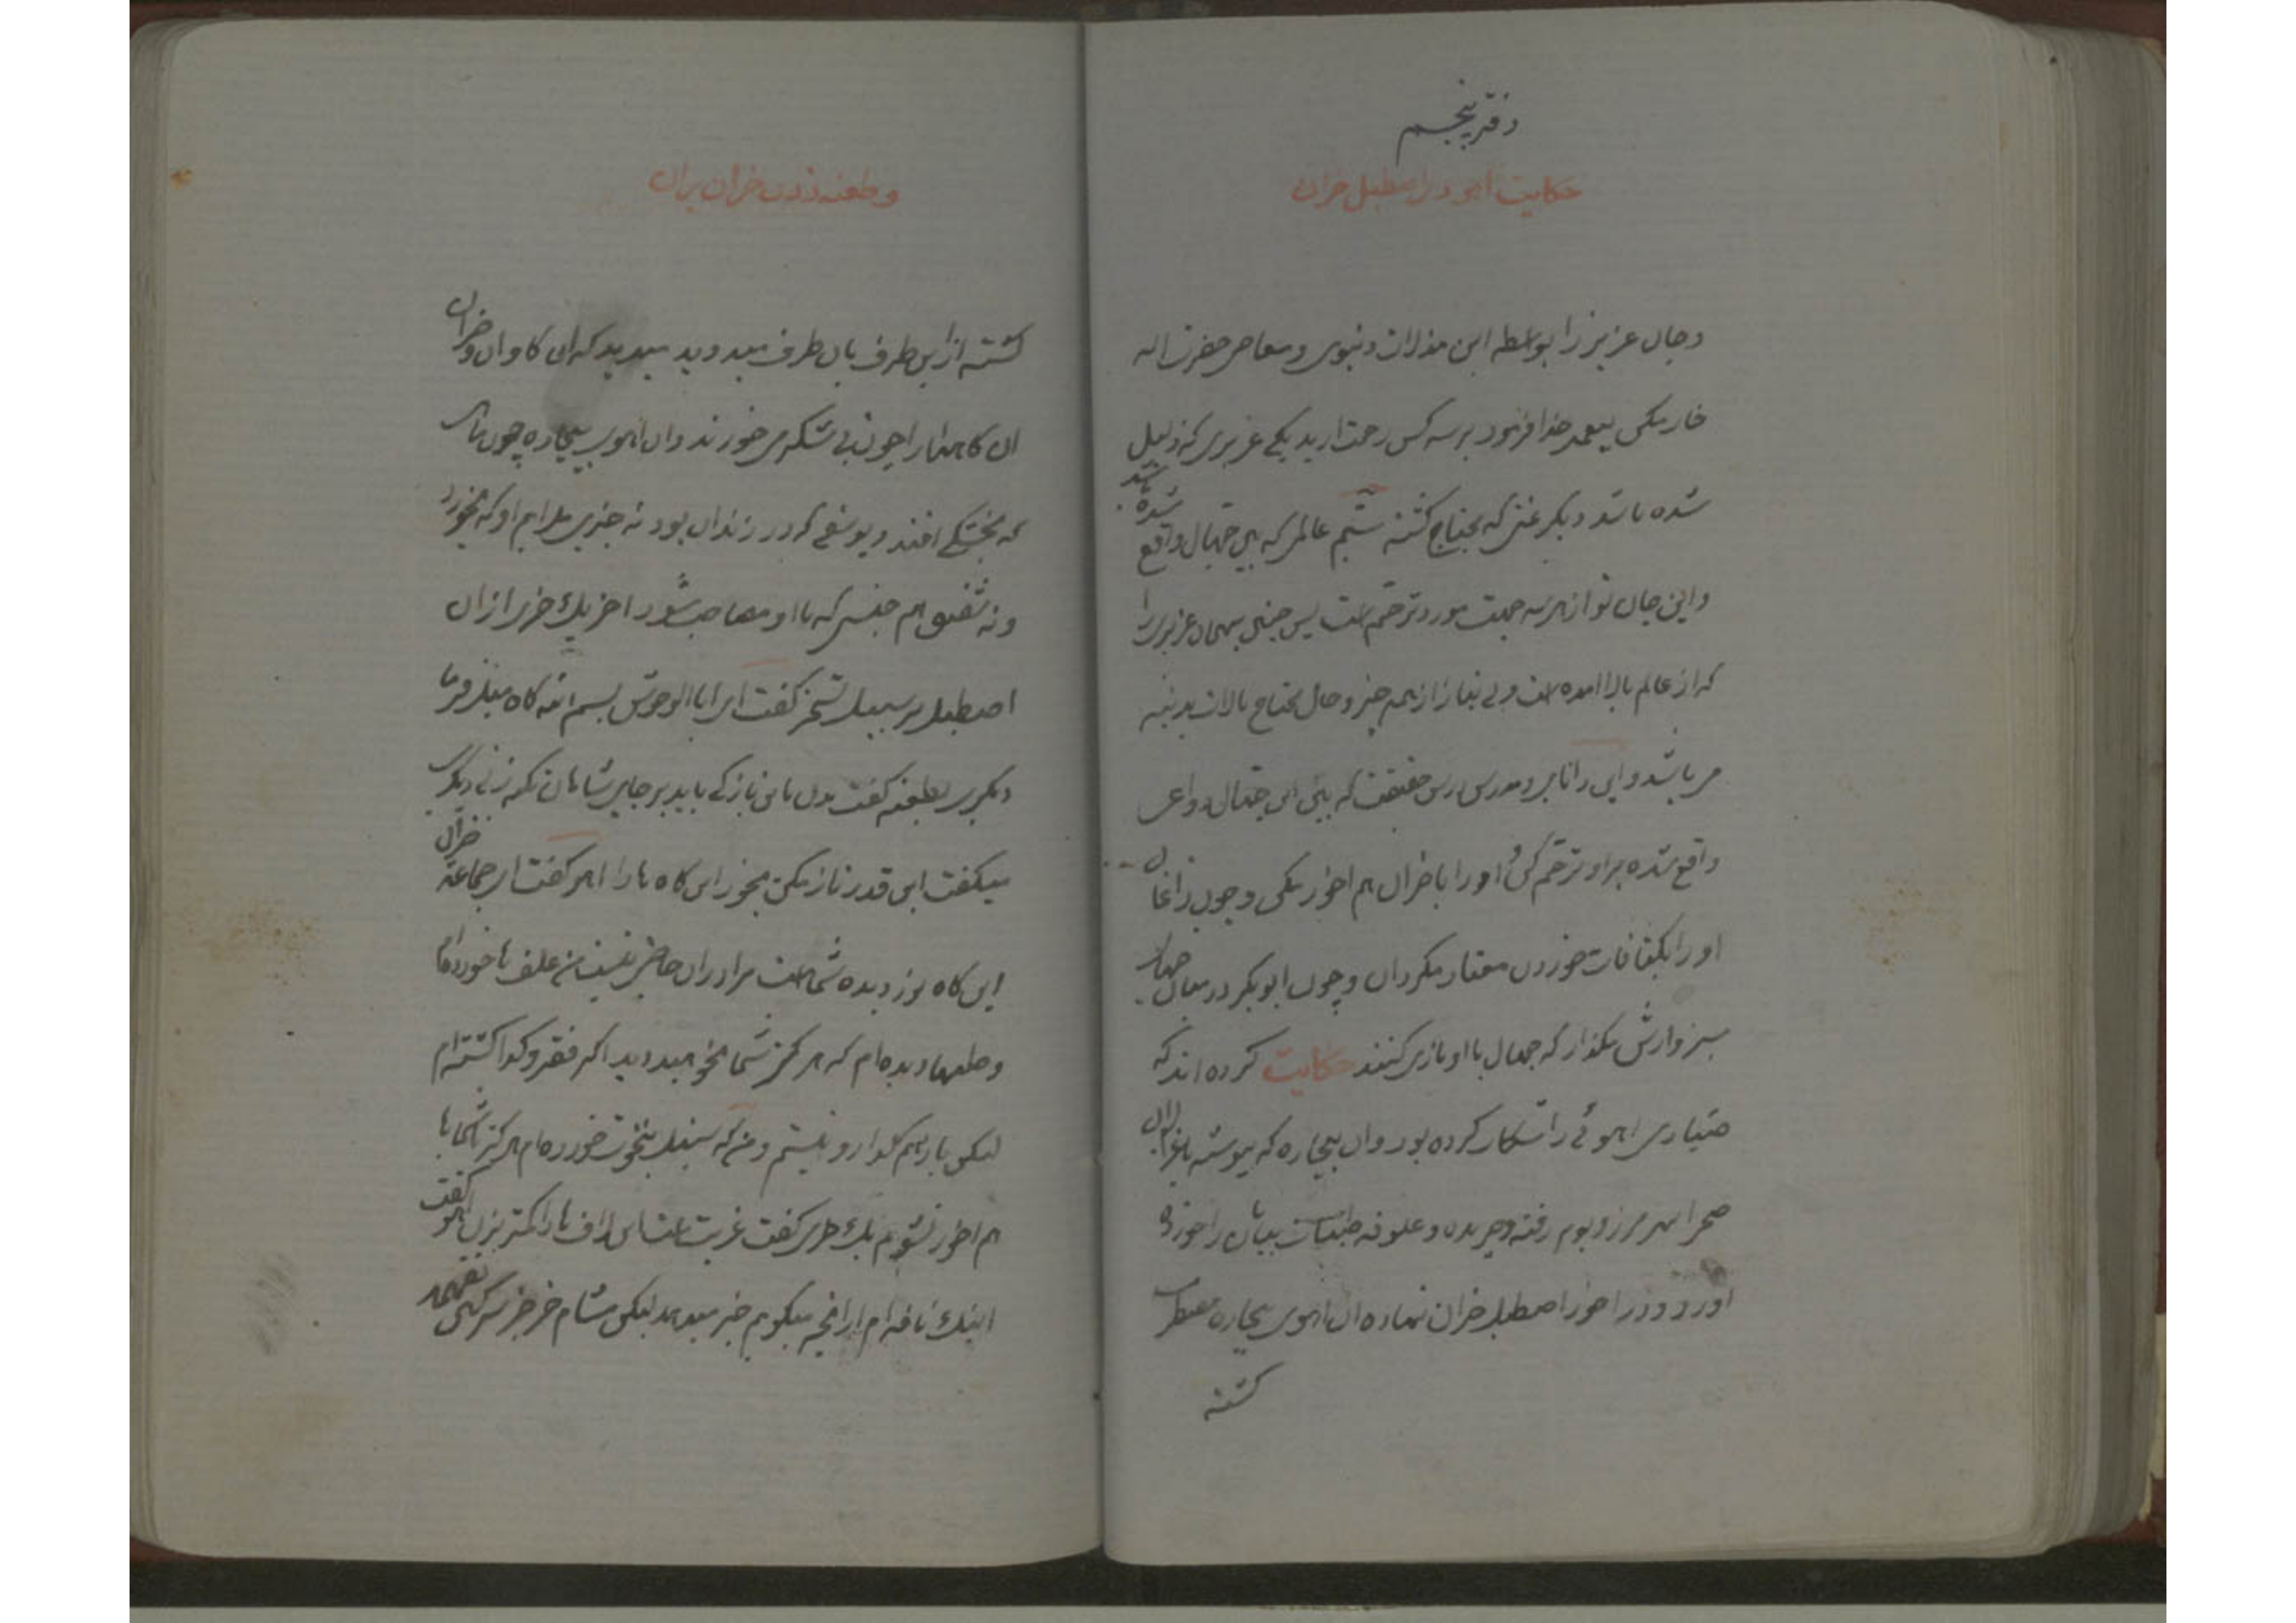 دفتر پنجم
حکایت آهو در اصطبل خران
و جان عزیز را بواسطه این مذلات دنیوی و معاصی حضرت اله
خار مکن پیغمبر خدا فرمود بر سه کس رحمت ارید یکی عزیزی که ذلیل
شده باشد دیگر غنی که محتاج کشته سیم عالمی که بین جهال واقع شده باشد
و این جان تو از هر سه جهت مورد ترحم است پس چنین مهمان عزیزی را
که از عالم بالا امده است و بی نیاز از همه چیز و حال محتاج بالات بدنیه
می باشد و این دانا بر و مدرس درس حقیقت که بین این جهال
واقع شده بر او ترحم کن و او را با خران هم اخور مکن و چون زاغان
او را بکثافات خوردن معتاد مکردان و چون ابوبکر در میان جهال
سبزوارش مکذار که جهال با او بازی کنند حکایت کرده اند که
صیادی اهوئی را شکار کرده بود و ان بیچاره که پیوسته با غزالان
صحرا بهر مرز و بوم رفته و چریده و علوفه بیابان را خورده
اورد و در اخور اصطبل خران نهاده ان اهوی بیچاره مضطرب
کشته
و طعنه زدن خران بران
کشته از این طرف بان طرف میدوید میدید که این کاوان و خران
ان کاهها را چون نی شکر می خورند و ان اهوی بیچاره چون ماهی
که بخشکی افتد و یوسفی که در زندان بود نه چیزی ملایم او که بخورد
و نه شفیق هم جنسی که با او مصاحب شود اخر یک خری از ان
اصطبل بر سبیل تسخر کفت ای ابا الوحوش بسم الله کاه میل فرما
دیکری بطعنه کفت بدل باین نازکی باید بر جای شاهان تکیه زنی دیکری
میکفت این قدر ناز مکن بخور این کاه ها را اهو کفت ای جماعة خران
این کاه نور دیده شما است مرا در ان حاضر نیست من علف ها خورده ام
و دیده ام که هر کز شما نخواهید دید اکر فقیر و کدا کشته ام
لیکن باز هم کدا رو نیستم و من که سنبل بنخوت خورده ام هر کز با شما ها
هم اخور نشوم یک خری کفت غربت است این لاف ها را کمتر بزن اهو کفت
اینک نافه ام از انچه میکویم خبر میدهد لیکن مشام خر جز سرکین نفهمد